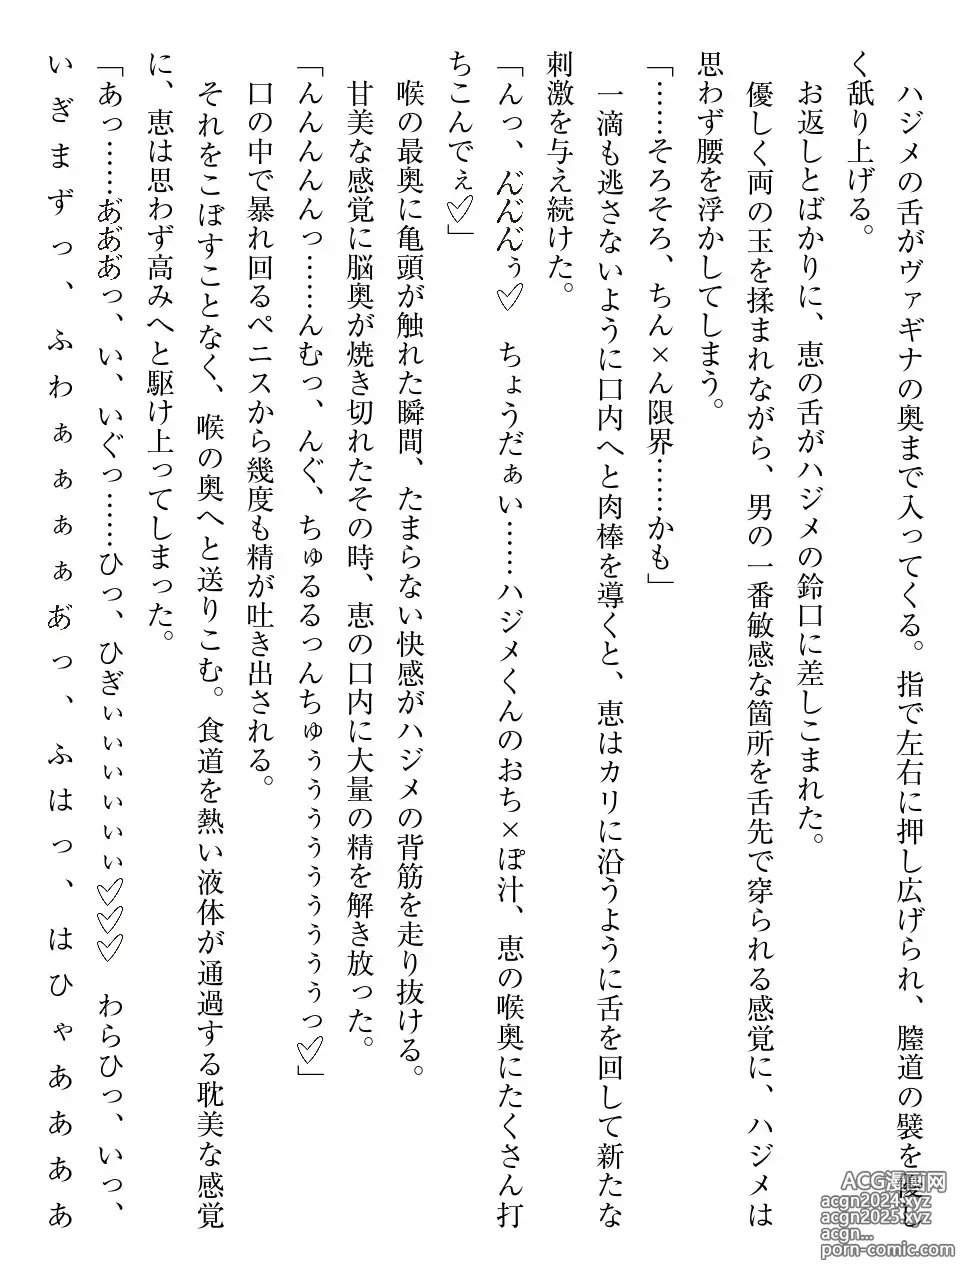 ハジメの舌がヴァギナの奥まで入ってくる。指で左右に押し広げられ、膣道の襞を優し
く舐り上げる。
お返しとばかりに、恵の舌がハジメの鈴口に差しこまれた。
優しく両の玉を揉まれながら、男の一番敏感な箇所を舌先で穿られる感覚に、ハジメは
思わず腰を浮かしてしまう。
「……そろそろ、ちん×ん限界……かも」
一滴も逃さないように口内へと肉棒を導くと、恵はカリに沿うように舌を回して新たな
刺激を与え続けた。
「んっ、ん゛ん゛ん゛ぅ♡　ちょうだぁい……ハジメくんのおち×ぽ汁、恵の喉奥にたくさん打
ちこんでぇ♡」
喉の最奥に亀頭が触れた瞬間、たまらない快感がハジメの背筋を走り抜ける。
甘美な感覚に脳奥が焼き切れたその時、恵の口内に大量の精を解き放った。
「んんんんっ……んむっ、んぐ、ちゅるるっんちゅぅぅぅぅぅぅぅっ♡」
口の中で暴れ回るペニスから幾度も精が吐き出される。
それをこぼすことなく、喉の奥へと送りこむ。食道を熱い液体が通過する耽美な感覚
に、恵は思わず高みへと駆け上ってしまった。
「あっ……あ゛あ゛あ゛っ、い、いぐっ……ひっ、ひぎぃぃぃぃぃ♡♡♡　わらひっ、いっ、
いぎまずっ、ふわぁぁぁぁあ゛っ、ふはっ、はひゃああああ
ACG漫画网
acgn2024.xyz
acgn2025.xyz
acgn...
porn-comic.com